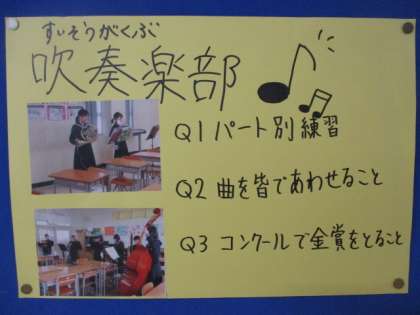 すいそうがくぶ
吹奏楽部
Q1 パート別練習
Q2 曲を皆であわせること
Q3 コンクールで金賞をとること